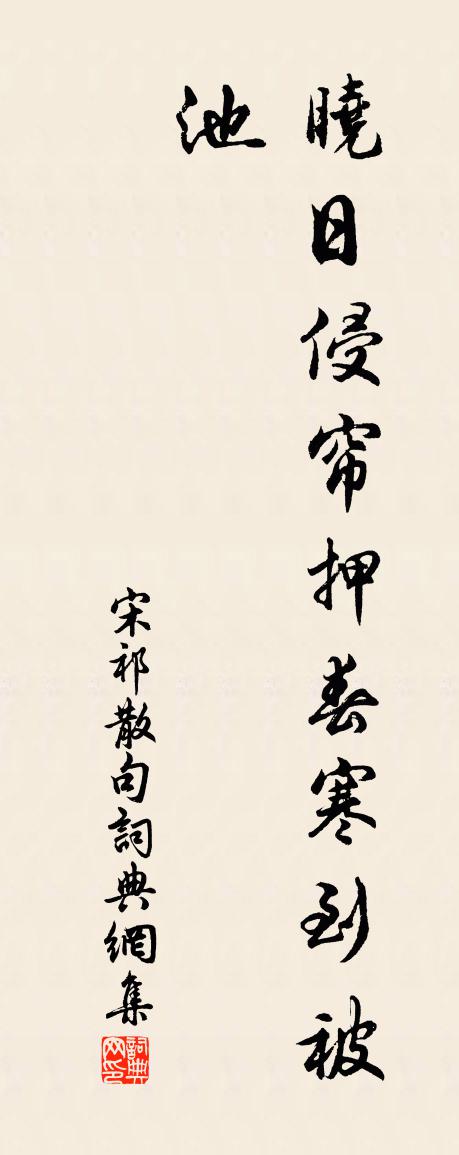 曉日侵帘押春寒到被
池
宋祁散句詞典網集
詞典网印